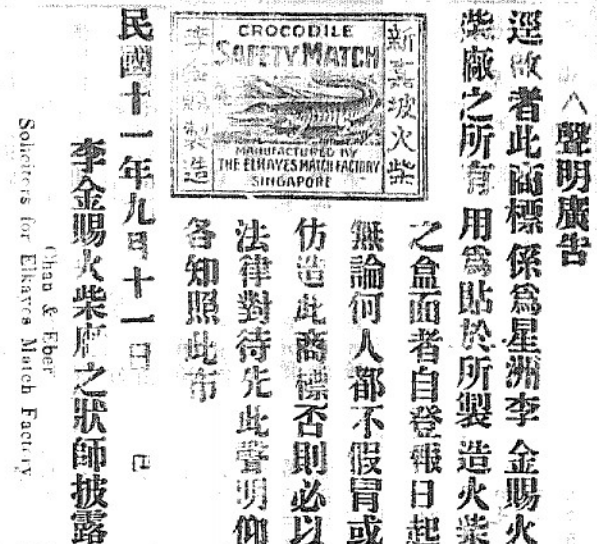 聲明廣告
逕啟者此商標係爲星洲李金賜火
柴廠之所有用爲貼於所製造火柴
之盒面者自登報日起
無論何人都不假冒或
仿造此商標否則必以
法律對待先此聲明仰
各知照此布
新嘉坡火柴
CROCODILE
SAFETY MATCH
MANUFACTURED BY
THE ELKAYES MATCH FACTORY
SINGAPORE
李金賜製造
民國十一年九月十一日
李金賜火柴廠之狀師披露
Chan & Eber
Solicitors for Elkayes Match Factory